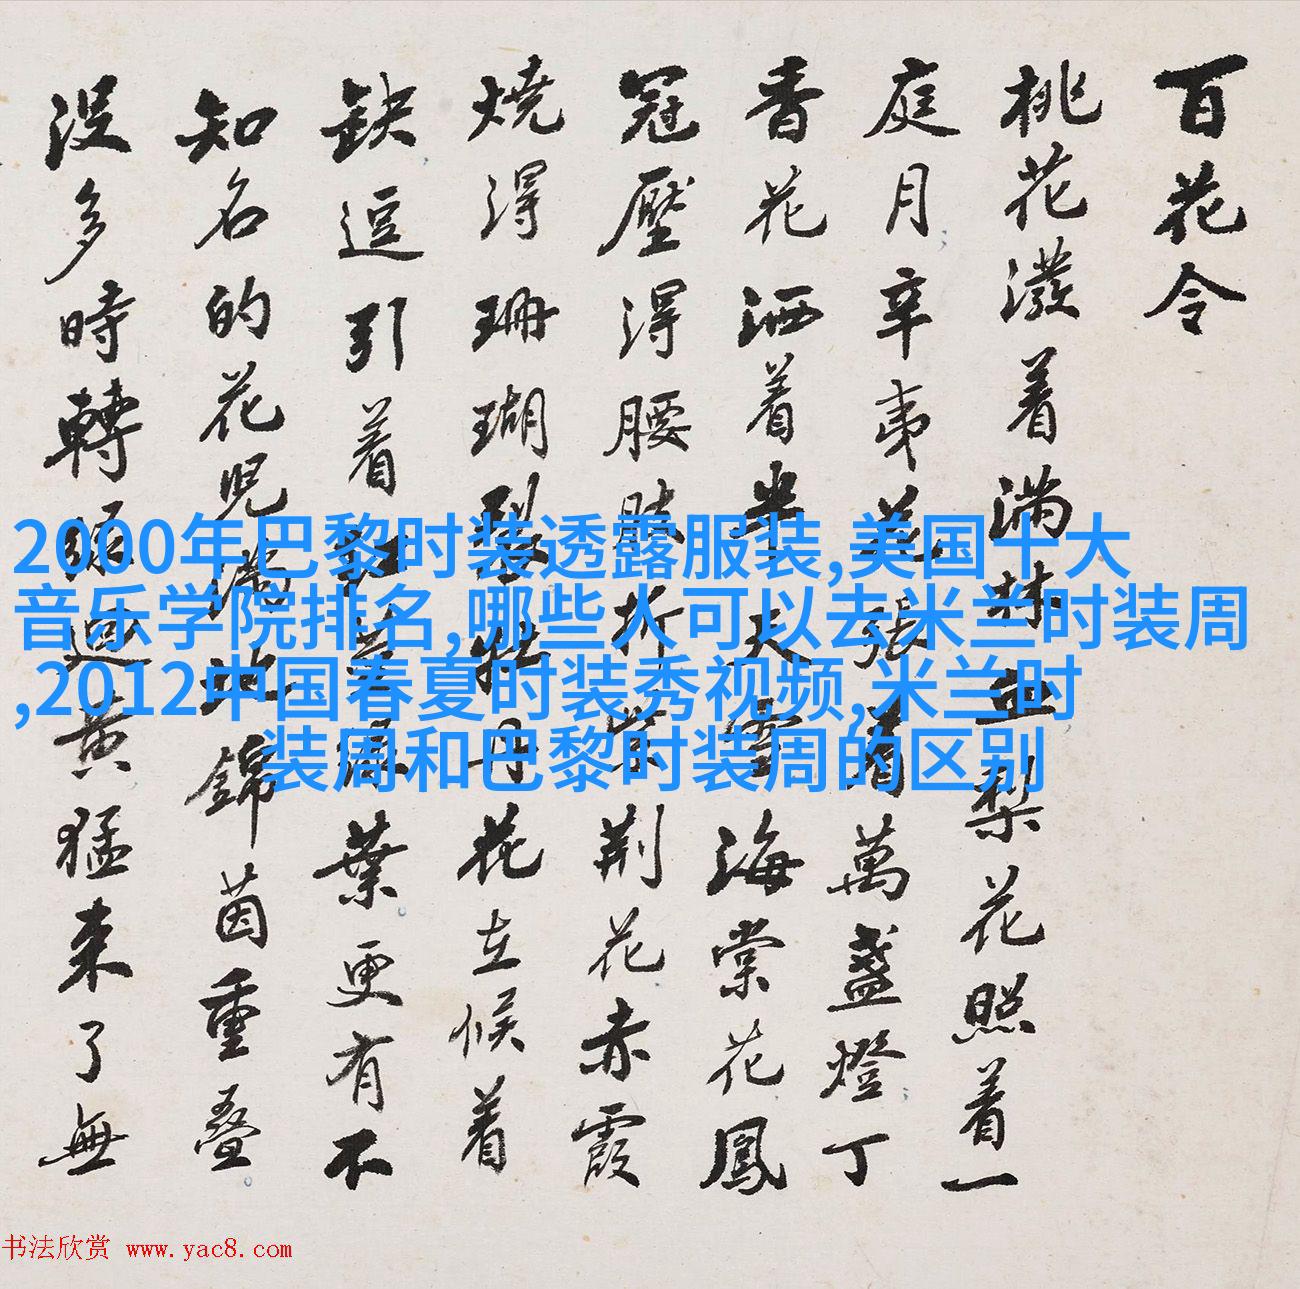 百花令
桃花潑着满林血梨花照着一
庭月辛夷花張着萬盞燈丁
香花洒着半天雪海棠花鳳
冠壓得腰肢折紫荆花赤霞
燒得珊瑚裂牡丹花在候着
缺逗引着葉更有不
知名的花兒满地錦茵重叠
没多時轉頭迴黄猛来了無
2000年巴黎时装透露服装,美国十大
音乐学院排名,哪些人可以去米兰时装周
,2012中国春夏时装秀视频,米兰时
装周和巴黎时装周的区别
书法欣赏 www.yac8.com